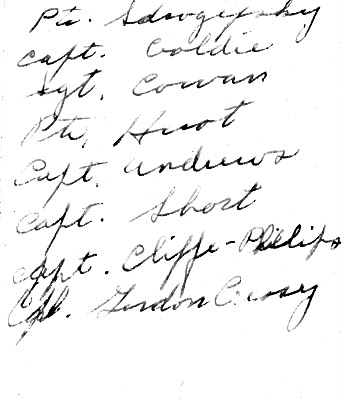 Pte.
Capt. Goldie
Sgt. Cowan
Pte. Huot
Capt. Andrews
Capt. Short
Capt. Cliffe-Phillips
Cpl. Gordon